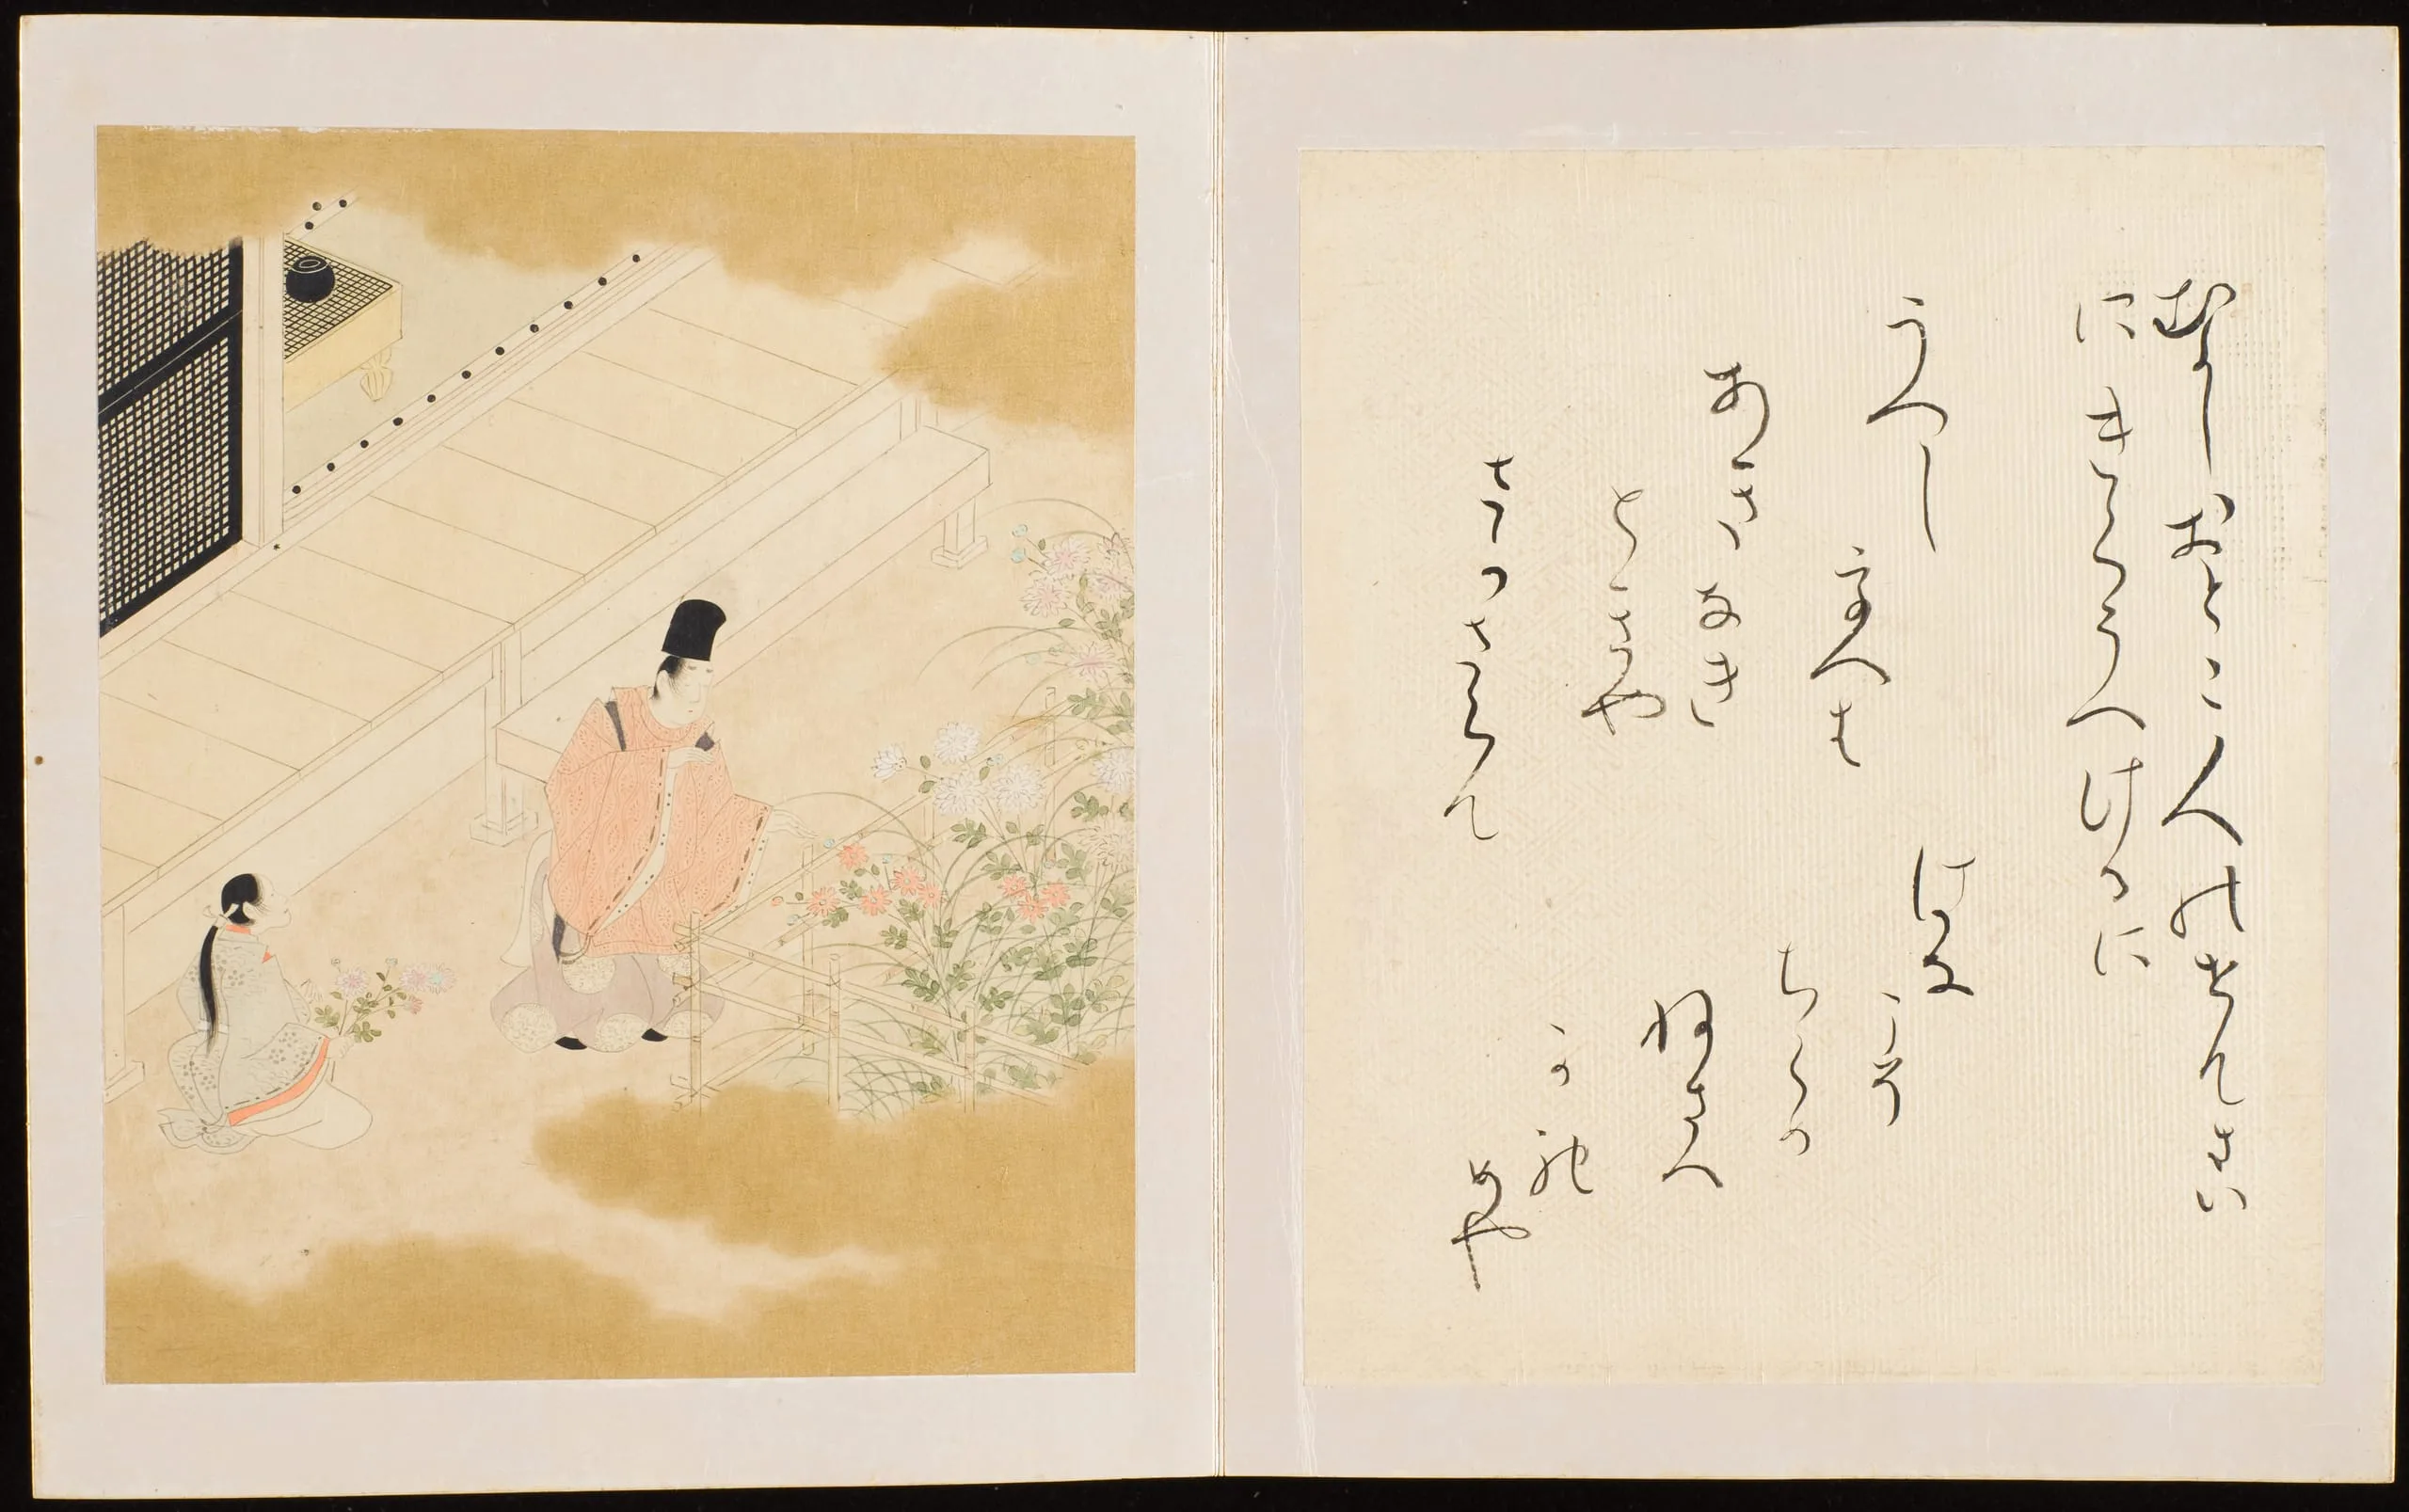 むかしおとこ人のせんさい
にきくうへけるに
うへし
うゑは
あき
なき
ときや
さかさらん
はな
こそ
ちらめ
ねさへ
かれ
めや